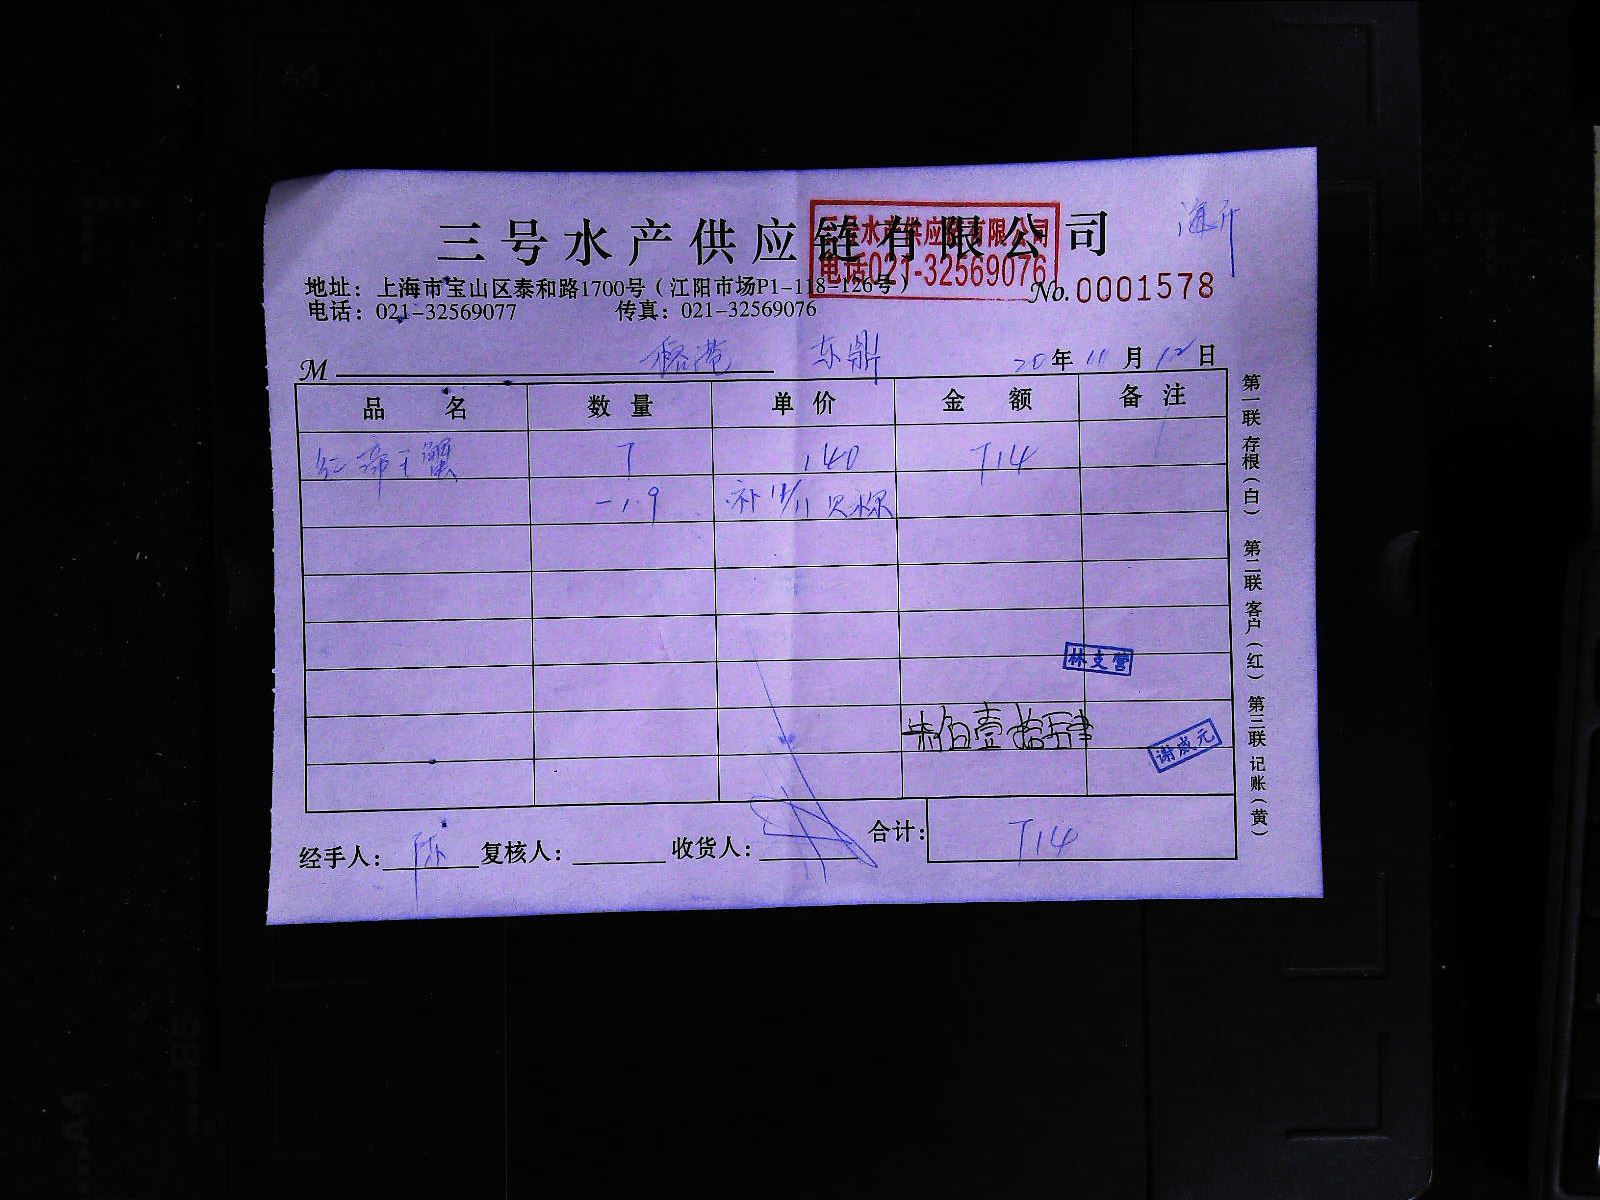 三号水产供应链有限公司
三号水产供应链有限公司
电话021-32569076
地址：上海市宝山区泰和路1700号（江阳市场P1-118-126号）
No.0001578
电话：021-32569077 传真：021-32569076
M 东鼎 20年11月12日
品名 数量 单价 金额 备注
红帝王蟹 7 140 714
-1.9 补 11/11
林支营
谢成元
经手人：陈 复核人： 收货人： 合计：714
第一联 存根（白） 第二联 客户（红） 第三联 记账（黄）